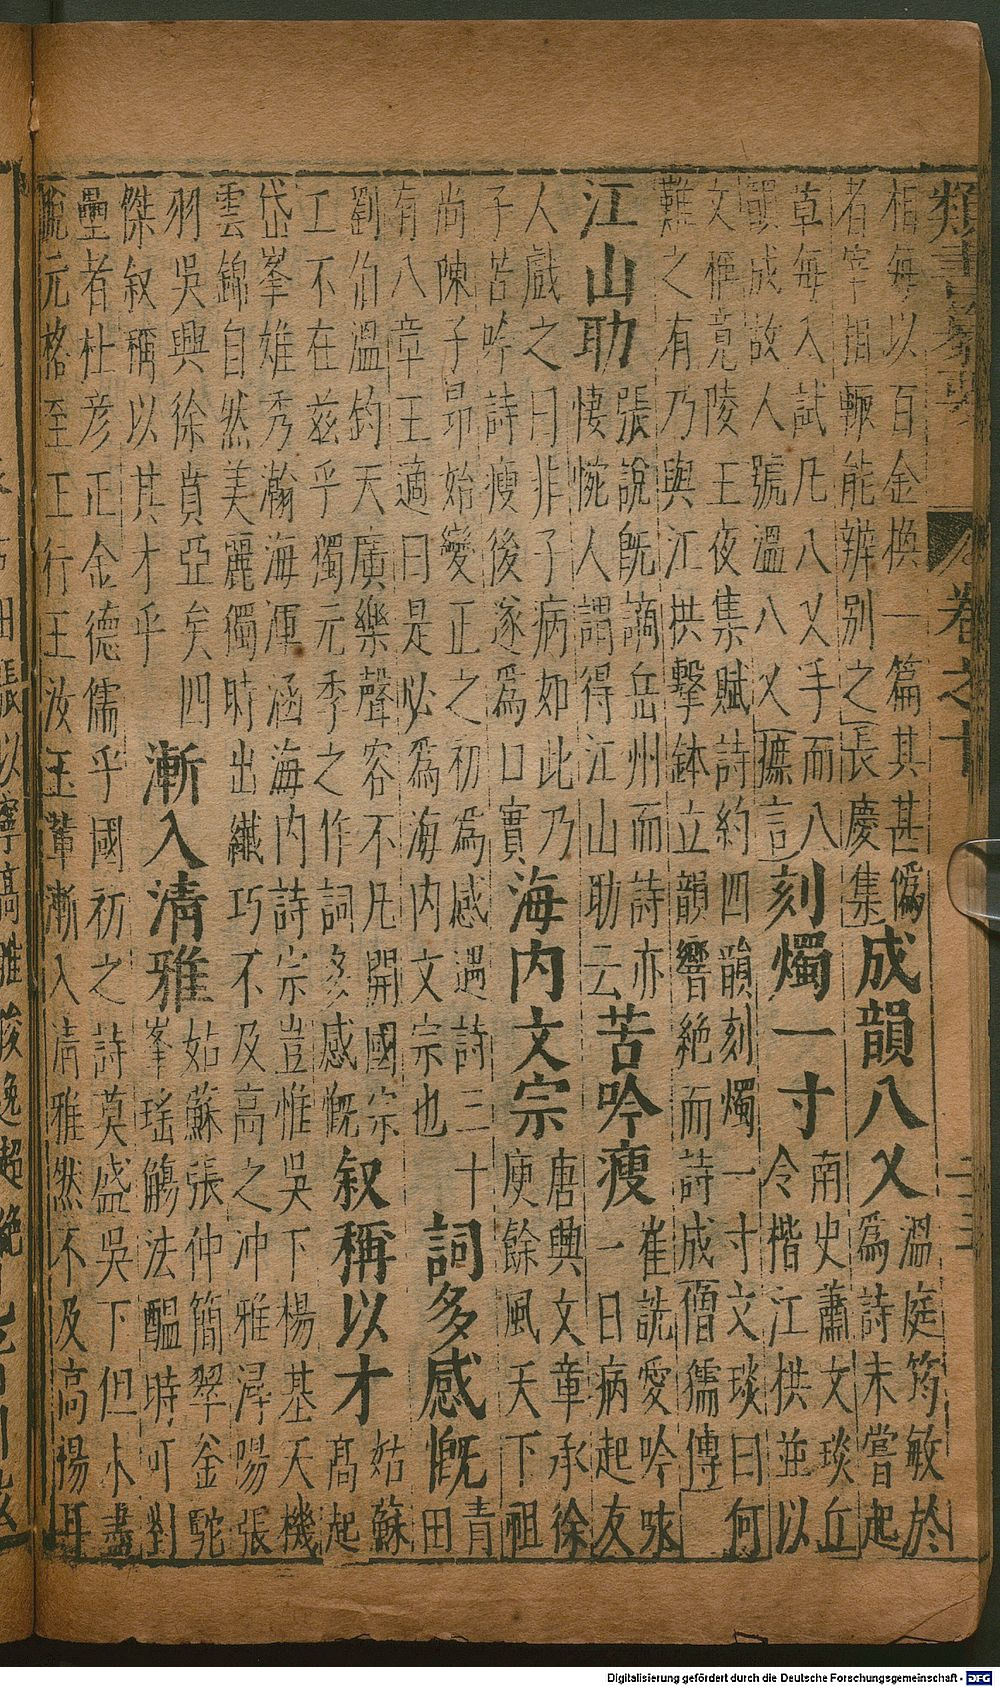 類書纂要 卷之十
相每以百金換一篇其甚僞
者宰相輒能辨别之長慶集
成韻八乂
溫庭筠敏於
為詩未嘗起
草每入試凡八乂手而八
韻成故人號溫八乂摭言
刻燭一寸
南史蕭文琰丘
令楷江拱並以
文稱竟陵王夜集賦詩約四韻刻燭一寸文琰曰何
難之有乃與江拱擊鉢立韻響絶而詩成僧儒傳
江山助
張說旣謫岳州而詩亦
悽惋人謂得江山助云
苦吟瘦
崔詵愛吟咏
一日病起友
人戲之曰非子病如此乃
子苦吟詩瘦後遂為口實
海内文宗
唐興文章承徐
庾餘風天下祖
尚陳子昂始變正之初為感遇詩三十
有八章王適曰是必為海内文宗也
詞多感慨
青
田
劉伯溫鈞天廣樂聲容不凡開國宗
工不在茲乎獨元季之作詞多感慨
叙稱以才
姑蘇
高起
岱峯雄秀瀚海渾涵海内詩宗豈惟吳下楊基天機
雲錦自然美麗獨時出纎巧不及高之冲雅潯陽張
羽吳興徐賁亞矣四
傑叙稱以其才乎
漸入清雅
姑蘇張仲簡翠釜駝
峯瑤觴法醖時可對
壘者杜彦正金德儒乎國初之詩莫盛吳下但未盡
脫元格至正行王汝玉輩漸入清雅然不及高楊耳
Digitalisierung gefördert durch die Deutsche Forschungsgemeinschaft - DFG